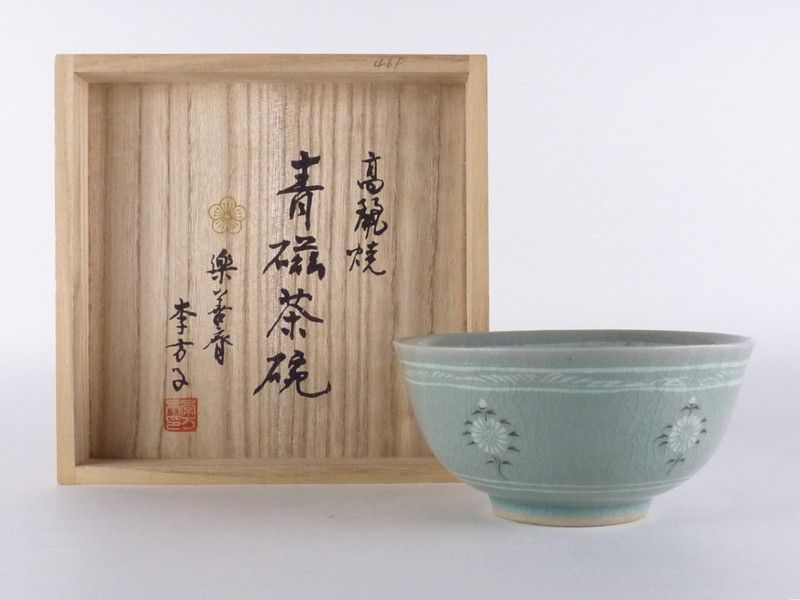 高麗焼
青磁茶碗
楽善斎
李方子